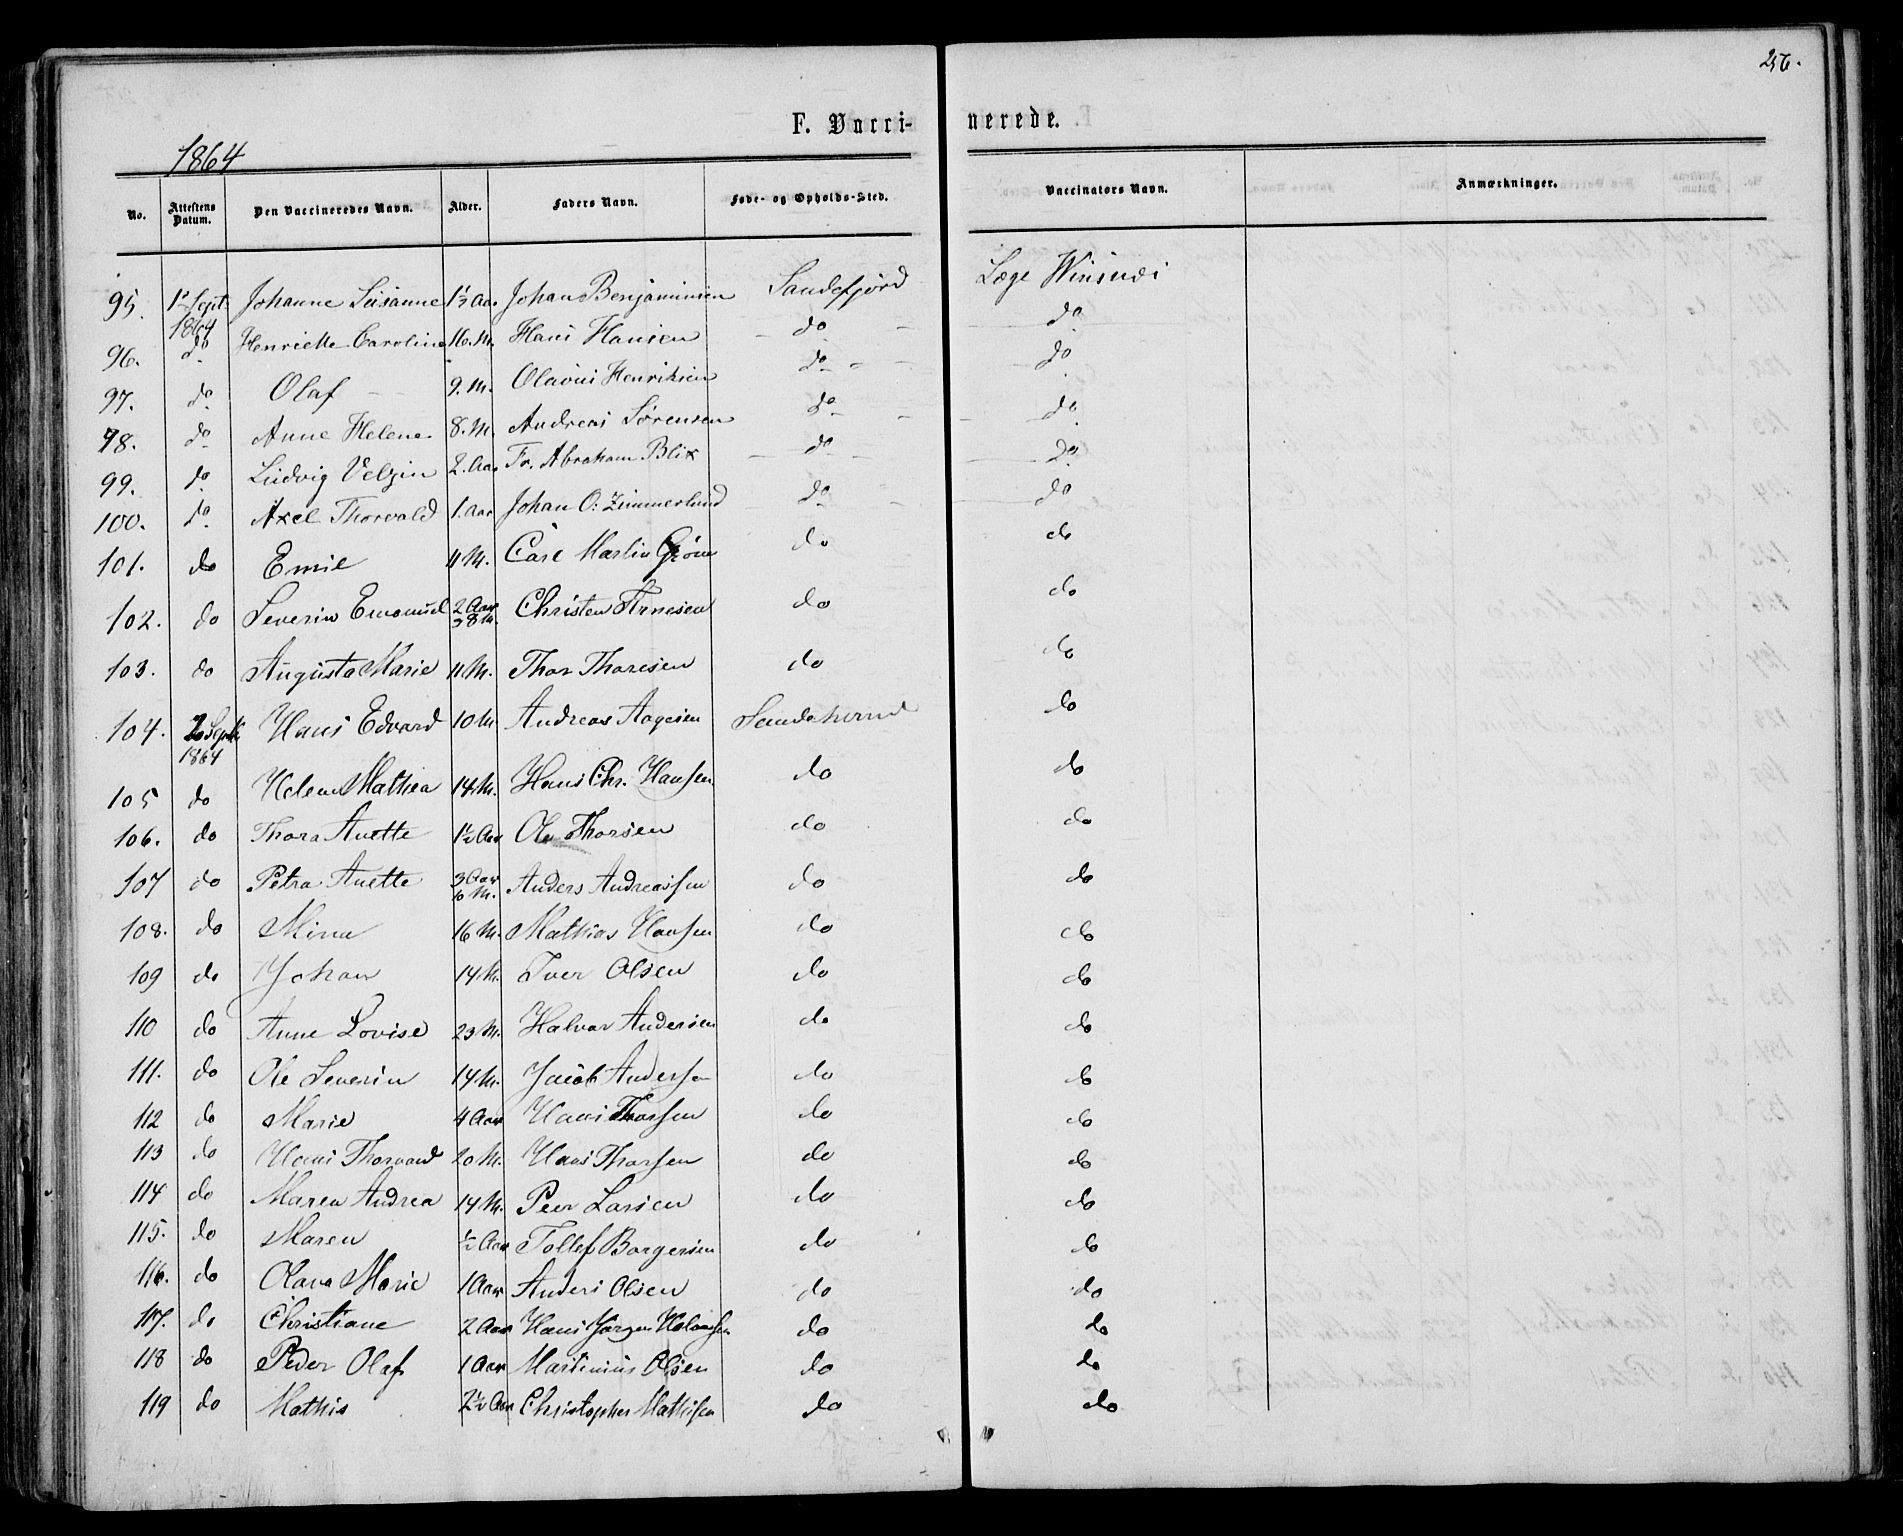 256.
F. Vacci- nerede.
1864
No. Attestens Datum. Den Vaccineredes Navn. Alder. Faders Navn. Føde- og Opholds-Sted. Vaccinators Navn. Anmærkninger.
95. 1e Sept. 1864 Johanne Susanne 1½ Aar Johan Benjaminsen Sandefjord Læge Winsnes
96. do Henriette Caroline 16. M. Hans Hansen do do
97. do Olaf 9. M. Olavus Henriksen do do
98. do Anne Helene 8. M. Andreas Sørensen do do
99. do Ludvig 2. Aar Fr. Abraham Blix do do
100. do Axel Thorvald 1. Aar Johan O. Zimmerlund do do
101. do Emil 11 M. Carl Martin Grøn do do
102. do Severin Emanuel 2 Aar 8 M. Christen Arnesen do do
103. do Augusta Marie 11 M. Thor Thoresen do do
104. 2 Septb 1864 Hans Edvard 10 M Andreas Aagesen Sandeherred do
105 do Helene Mathea 14 M. Hans Chr. Hansen do do
106. do Thora Anette 1½ Aar Ole Thorsen do do
107 do Petra Anette 3 Aar 6 M. Anders Andreassen do do
108. do Mina 16 M. Mathias Hansen do do
109 do Johan 14 M. Iver Olsen do do
110 do Anne Lovise 23 M. Halvor Andersen do do
111. do Ole Severin 14 M. Jacob Andersen do do
112 do Marie 4 Aar Hans Thorsen do do
113 do Hans Thorvard 20 M. Hans Thorsen do do
114 do Maren Andrea 14 M. Peer Larsen do do
115. do Maren ½ Aar Tollef Borgersen do do
116. do Olava Marie 1 Aar Anders Olsen do do
117. do Christiane 2 Aar Hans Jørgen do do
118 do Peder Olaf 1 Aar Martinius Olsen do do
119 do Mathis 2½ Aar Christopher Mathisen do do